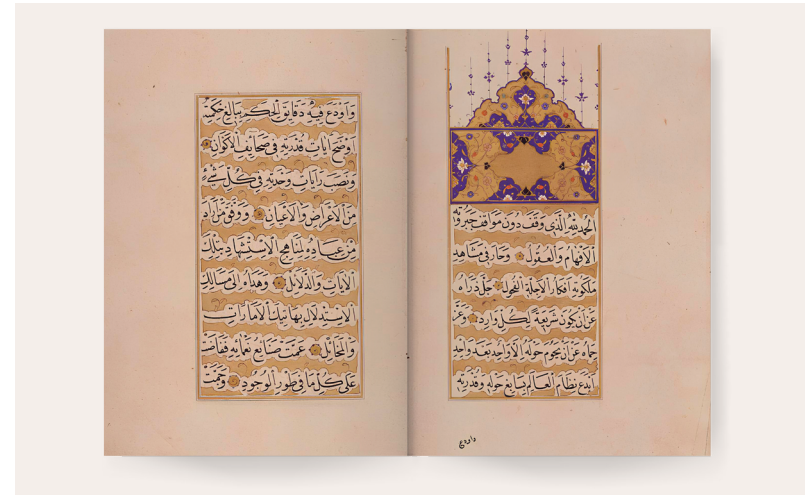 الحمد لله الذي وقف دون مواقف جبروته
الافهام والعقول وحار في مشاهد
ملكوته افكار الاجلة الفحول جل ذراه
عن ان يكون شريعة لكل وارد وعز
حماه عن ان يحوم حوله الا واحد بعد واحد
ابدع نظام العالم بسابغ حوله وقدرته
واودع
واودع فيه دقايق الحكم ببالغ حكمته
اوضح ايات قدرته في صحايف الاكوان
ونصب رايات وحدته في كل شيء
من الاعراض والاعيان ووفق من اراد
من عباده لمناهج الاستشهاد بتلك
الايات والدلايل وهداه الى مسالك
الاستدلال بهاتيك الامارات
والمخايل عمت صنايع نعمائه ففاضت
على كل ما في طور الوجود وجمت